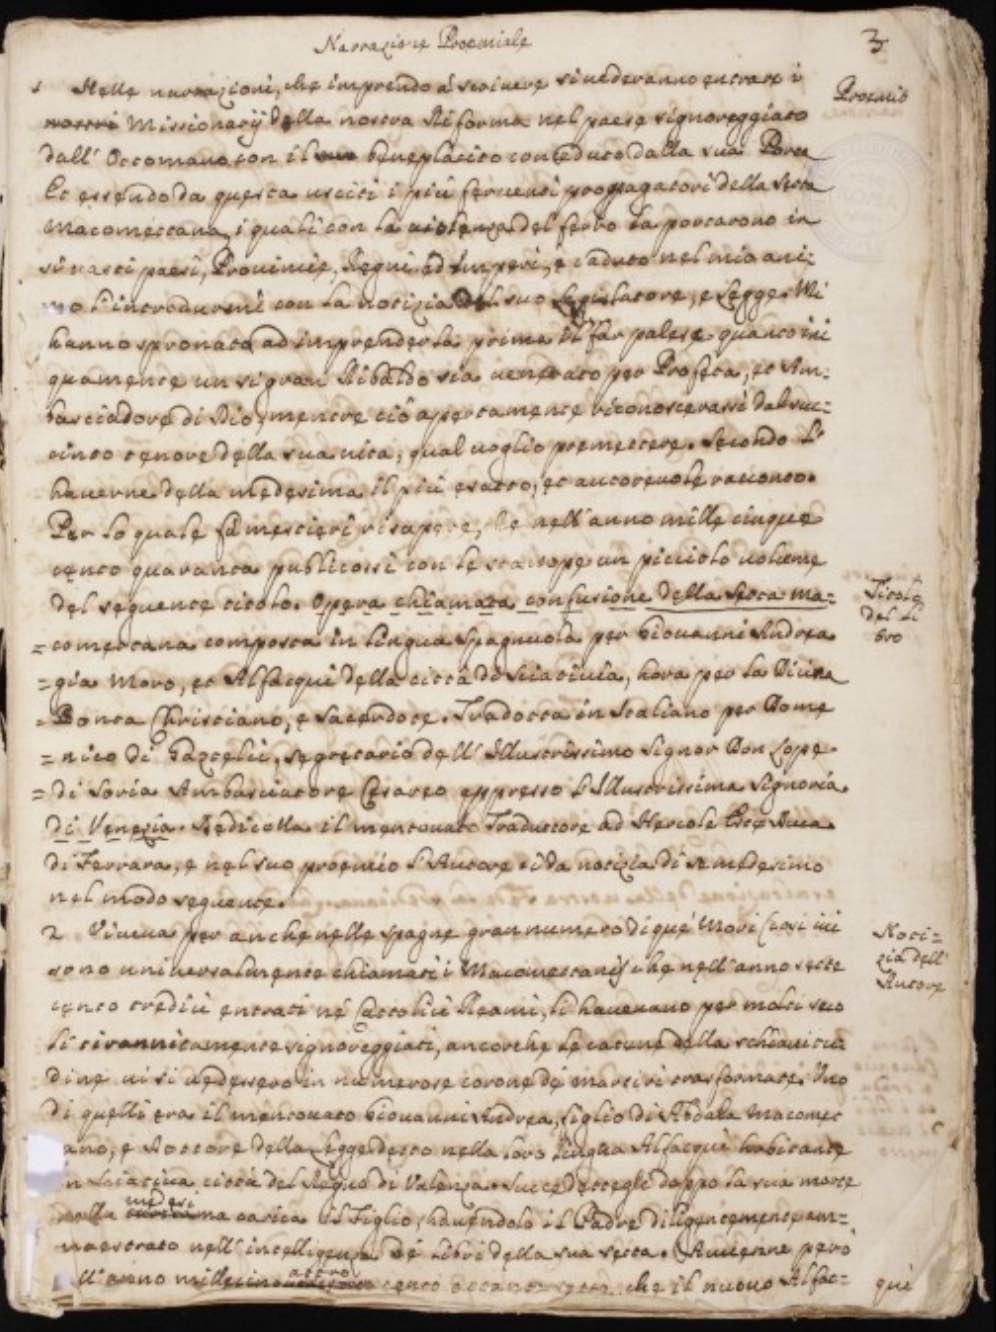 Narrazione Proemiale
3
1 Nelle narrazioni, che imprendo à scrivere si vederanno entrare i
Proemio
nostri Missionarij della nostra Riforma nel paese signoreggiato
dall' Ottomano con il suo beneplacito conceduto dalla sua Porta
Et essendo da questa usciti i più ferventi propagatori della Setta
Macomettana, i quali con la violenza del ferro la portarono in
sì vasti paesi, Provincie, Regni ed Imperi, è caduto nel mio ani-
mo l'introdurmi con la notizia del suo Legislatore, e Legge. Mi
hanno spronato ad imprenderla prima il far palese quanto ini
quamente un sì gran Ribaldo sia venerato per Profeta, et Am-
basciadore di Dio, mentre ciò apertamente riconoscerassi dal suc-
cinto tenore della sua vita, qual voglio premettere. Secondo l'
haverne della medesima il più esatto, et autorevole racconto.
Per lo quale fà mestieri risapere, che nell'anno mille cinque
cento quaranta publicossi con le stampe un picciolo volume
del seguente titolo. Opera chiamata confusione della Setta ma-
Titolo
del Li
bro
= comettana composta in lingua Spagnuola per Giovanni Andrea
= gia Moro, et Alfacqui della città di Sciativia, hora per la Divina
= Bonta Christiano, e Sacerdote. Tradotta in Italiano per Dome
= nico di Gaztelù, segretario dell' Illustrissimo Signor Don Lope
= di Soria Ambasciatore Cesareo appresso l'Illustrissima Signoria
di Venezia. Dedicolla il mentovato Traduttore ad Hercole Este Duca
di Ferrara, e nel suo proemio l'Autore ci dà notizia di se medesimo
nel modo seguente.
2 Viveva per anche nelle Spagne gran numero di que' Mori (così ivi
Noti-
zia dell'
Autore
sono universalmente chiamati i Macomettani) che nell'anno sette
cento tredici entrati nè Cattolici Reami, li havevano per molti seco
li tirannicamente signoreggiati, ancorche le catene della schiavitu
dine vi si vedessero in numerose corone dè martiri trasformate. Uno
di quelli era il mentovato Giovanni Andrea, figlio di Abdala Macomet
tano, e Dottore della Legge detto nella loro lingua Alfacquì habitante
in Sciativa città del Regno di Valenza. Succedettegli doppo la sua morte
nella medesima carica il Figlio, havendolo il Padre diligentemente am-
maestrato nell'intelligenza dè Libri della sua setta. Avvenne però
l'anno mille quattro cento ottanta sette, che il nuovo Alfac-
qui